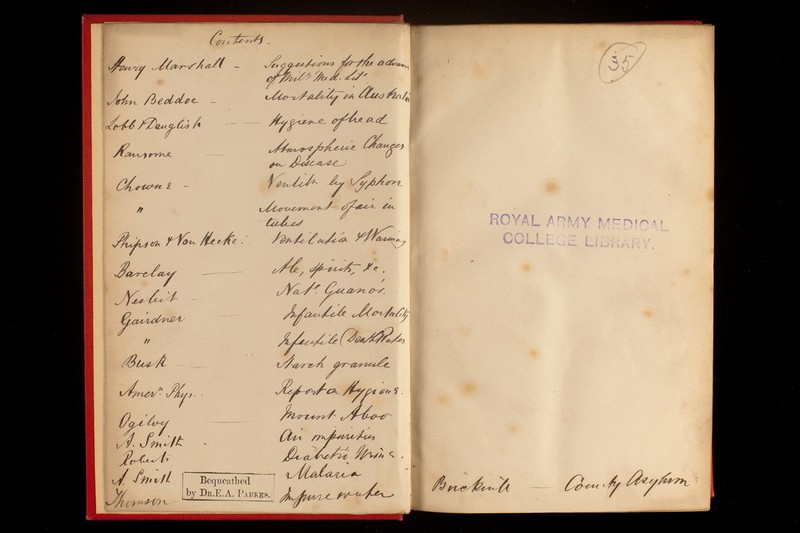 Contents.
Henry Marshall - Suggestions for the advan
of Mil. Med. Lit.
John Beddoe - Mortality in Australia
Lobb & Dauglish - - Hygiene of bread
Ransome Atmospheric Changes
on Disease
Chowne - Ventiln by Syphon
" Movement of air in
tubes
Phipson & Van Hecke: Ventilation & Warming
Barclay - Ale, spirits, &c.
Nesbit - Nat. Guanos.
Gairdner Infantile Mortality
" Infantile Death Rates
Busk - Starch granule
Amern Phys. Report on Hygiene.
Ogilvy Mount Aboo
A. Smith Air impurities
Roberts Diabetic Urine.
A. Smith Malaria
Thomson Impure water
Bequeathed
by DR. E. A. PARKES.
35
ROYAL ARMY MEDICAL
COLLEGE LIBRARY.
- County Asylum